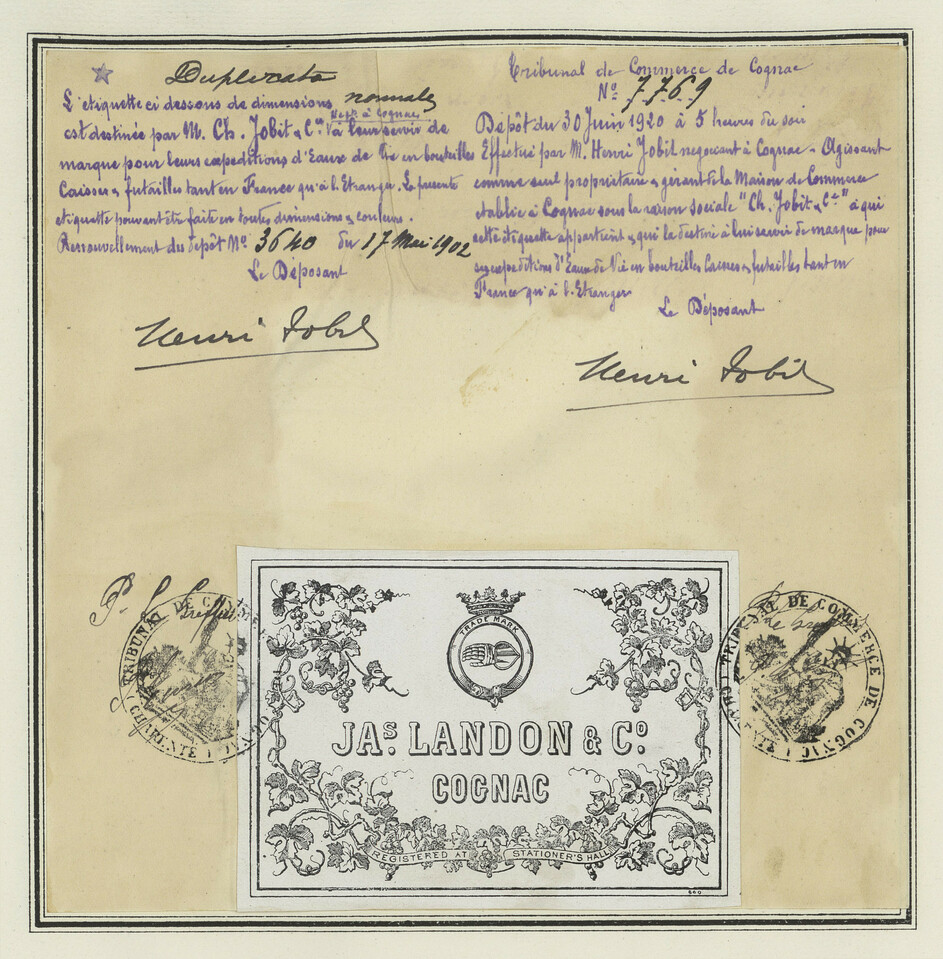 Duplicata
L'etiquette ci dessous de dimensions normales
est destinée par M. Ch. Jobit & Cie Negts à Cognac à leur servir de
marque pour leurs expeditions d'Eaux de Vie en bouteilles
Caisses & futailles tant en France qu'à l'Etranger. La presente
etiquette pouvant être faite en toutes dimensions & couleurs.
Renouvellement du depôt No. 3640 du 17 Mai 1902
Le Déposant
Henri Jobit
Tribunal de Commerce de Cognac
No. 7769
Dépôt du 30 Juin 1920 à 5 heures du soir
Effectué par M. Henri Jobit negociant à Cognac - Agissant
comme seul propriétaire & gérant de la Maison de Commerce
etablie à Cognac sous la raison sociale "Ch. Jobit & Cie" à qui
cette étiquette appartient & qui la destine à lui servir de marque pour
ses expeditions d'Eaux de Vie en bouteilles Caisses & futailles tant en
France qu'à l'Etranger
Le Déposant
Henri Jobit
Pr. Le Greffier
TRIBUNAL DE COMMERCE
COGNAC
CHARENTE
TRADE MARK
JAS. LANDON & Co.
COGNAC
REGISTERED AT STATIONER'S HALL
TRIBUNAL DE COMMERCE DE COGNAC
CHARENTE